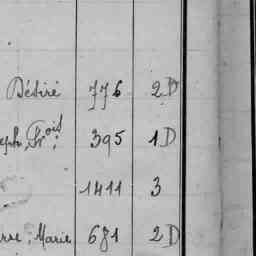 Désiré 776 2D
eph, Fçois 395 1D
1411 3
rre, Marie 681 2D